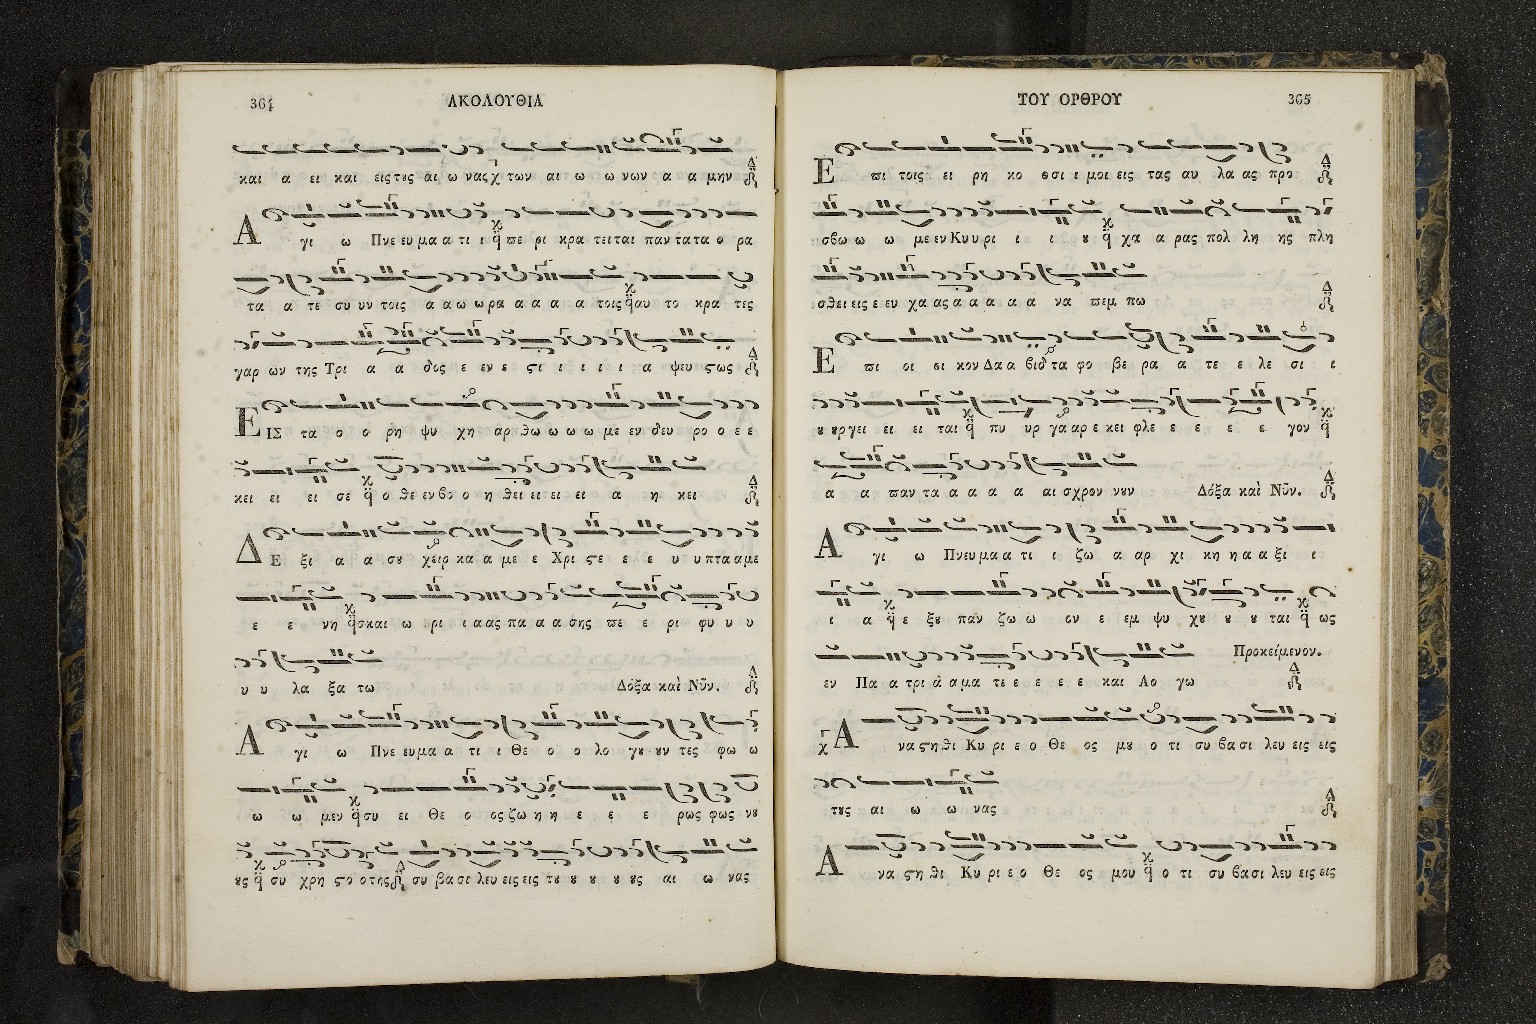 364 ΑΚΟΛΟΥΘΙΑ
και α ει και εις τȣς αι ω νας των αι ω ω νων α α μην
Α γι ω Πνε ευ μα α τι ι ϖε ρι κρα τει ται παν τα τα ο ρα
τα α τε συ υν τοις α α ω ω ρα α α α α τοις αυ το κρα τες
γαρ ων της Τρι α α δος ε εν ε ϛι ι ι ι ι α ψευ ϛως
Ε ΙΣ τα ο ο ρη ψυ χη αρ θω ω ω ω με εν δευ ρο ο ε ε
κει ει ει σε ο θε εν βο ο η θει ει ει ει ει α η κει
Δ Ε ξι α α σου χειρ κα α με ε Χρι ϛε ε ε υ υ πτα α με
ε ε νη σκαι ω ρι ι α ας πα α α σης ϖε ε ρι φυ υ υ
υ υ λα ξα τω Δόξα καὶ Νῦν.
Α γι ω Πνε ευ μα α τι ι Θε ο ο λο γȣ ȣν τες φω ω
ω ω μεν συ ει Θε ο ος ζω η η ε ε ε ρως φως νȣ
ȣς συ χρη ϛο ο της συ βα σι λευ εις εις τȣ ȣ ȣ ȣ ȣς αι ω νας
ΤΟΥ ΟΡΘΡΟΥ 365
Ε ϖι τοις ει ρη κο οσι ι μοι εις τας αυ λα ας προ
σβω ω ω με εν Κυ υ ρι ι ι ȣ χα α ρας πολ λη ης πλη
σθει εις ε ευ χα ας α α α α α να ϖεμ πω
Ε ϖι οι οι κον Δα α βιδ τα φο βε ρα α τε ε λε σι ι
ȣ ȣρ γει ει ει ται πυ υρ γα αρ ε κει φλε ε ε ε ε ε γον
α α ϖαν τα α α α α αι σχρον νȣν Δόξα καὶ Νῦν.
Α γι ω Πνευ μα α τι ι ζω α αρ χι κη η α α ξι ι
ι α ε ξȣ παν ζω ω ον ε εμ ψυ χȣ ȣ ȣ ται ως
εν Πα α τρι ἁ α μα τε ε ε ε ε και Λο γω Προκείμενον.
Α να ϛη θι Κυ ρι ε ο Θε ος μȣ ο τι συ βα σι λευ εις εις
τȣς αι ω ω νας
Α να ϛη θι Κυ ρι ε ο Θε ος μου ο τι συ βα σι λευ εις εις